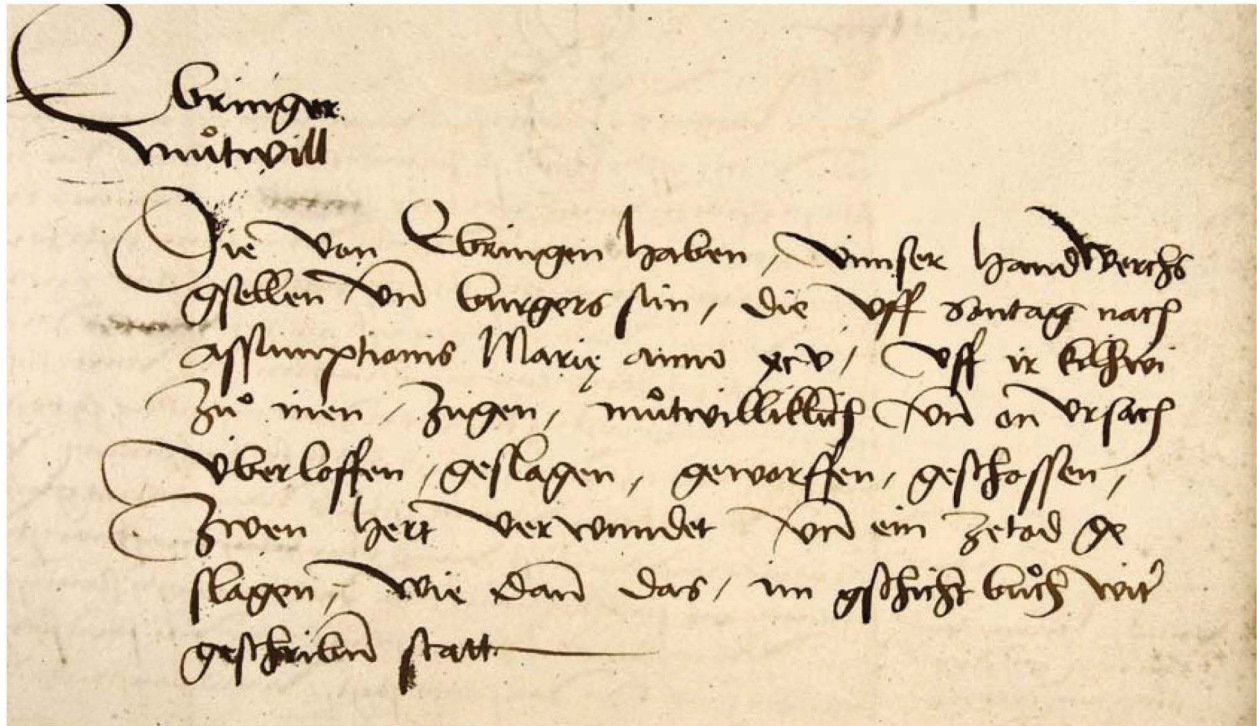 Ebringer
můtwill
Die von Ebringen haben / Unnser handtwerchs
gsellen Vn̄ burgers sün / die Vff Sontag nach
assumptionis Marię anno xcv / Vff ir kilchwi
Zů inen / Zugen / můtwilliklich Vn̄ on Vrsach
Vberloffen / geslagen / geworffen / geschossen /
Zwen hert Verwundet Vn̄ ein Zetod ge
slagen / wie dan̄ das / im gschicht bůch wit'
geschribn̄ statt